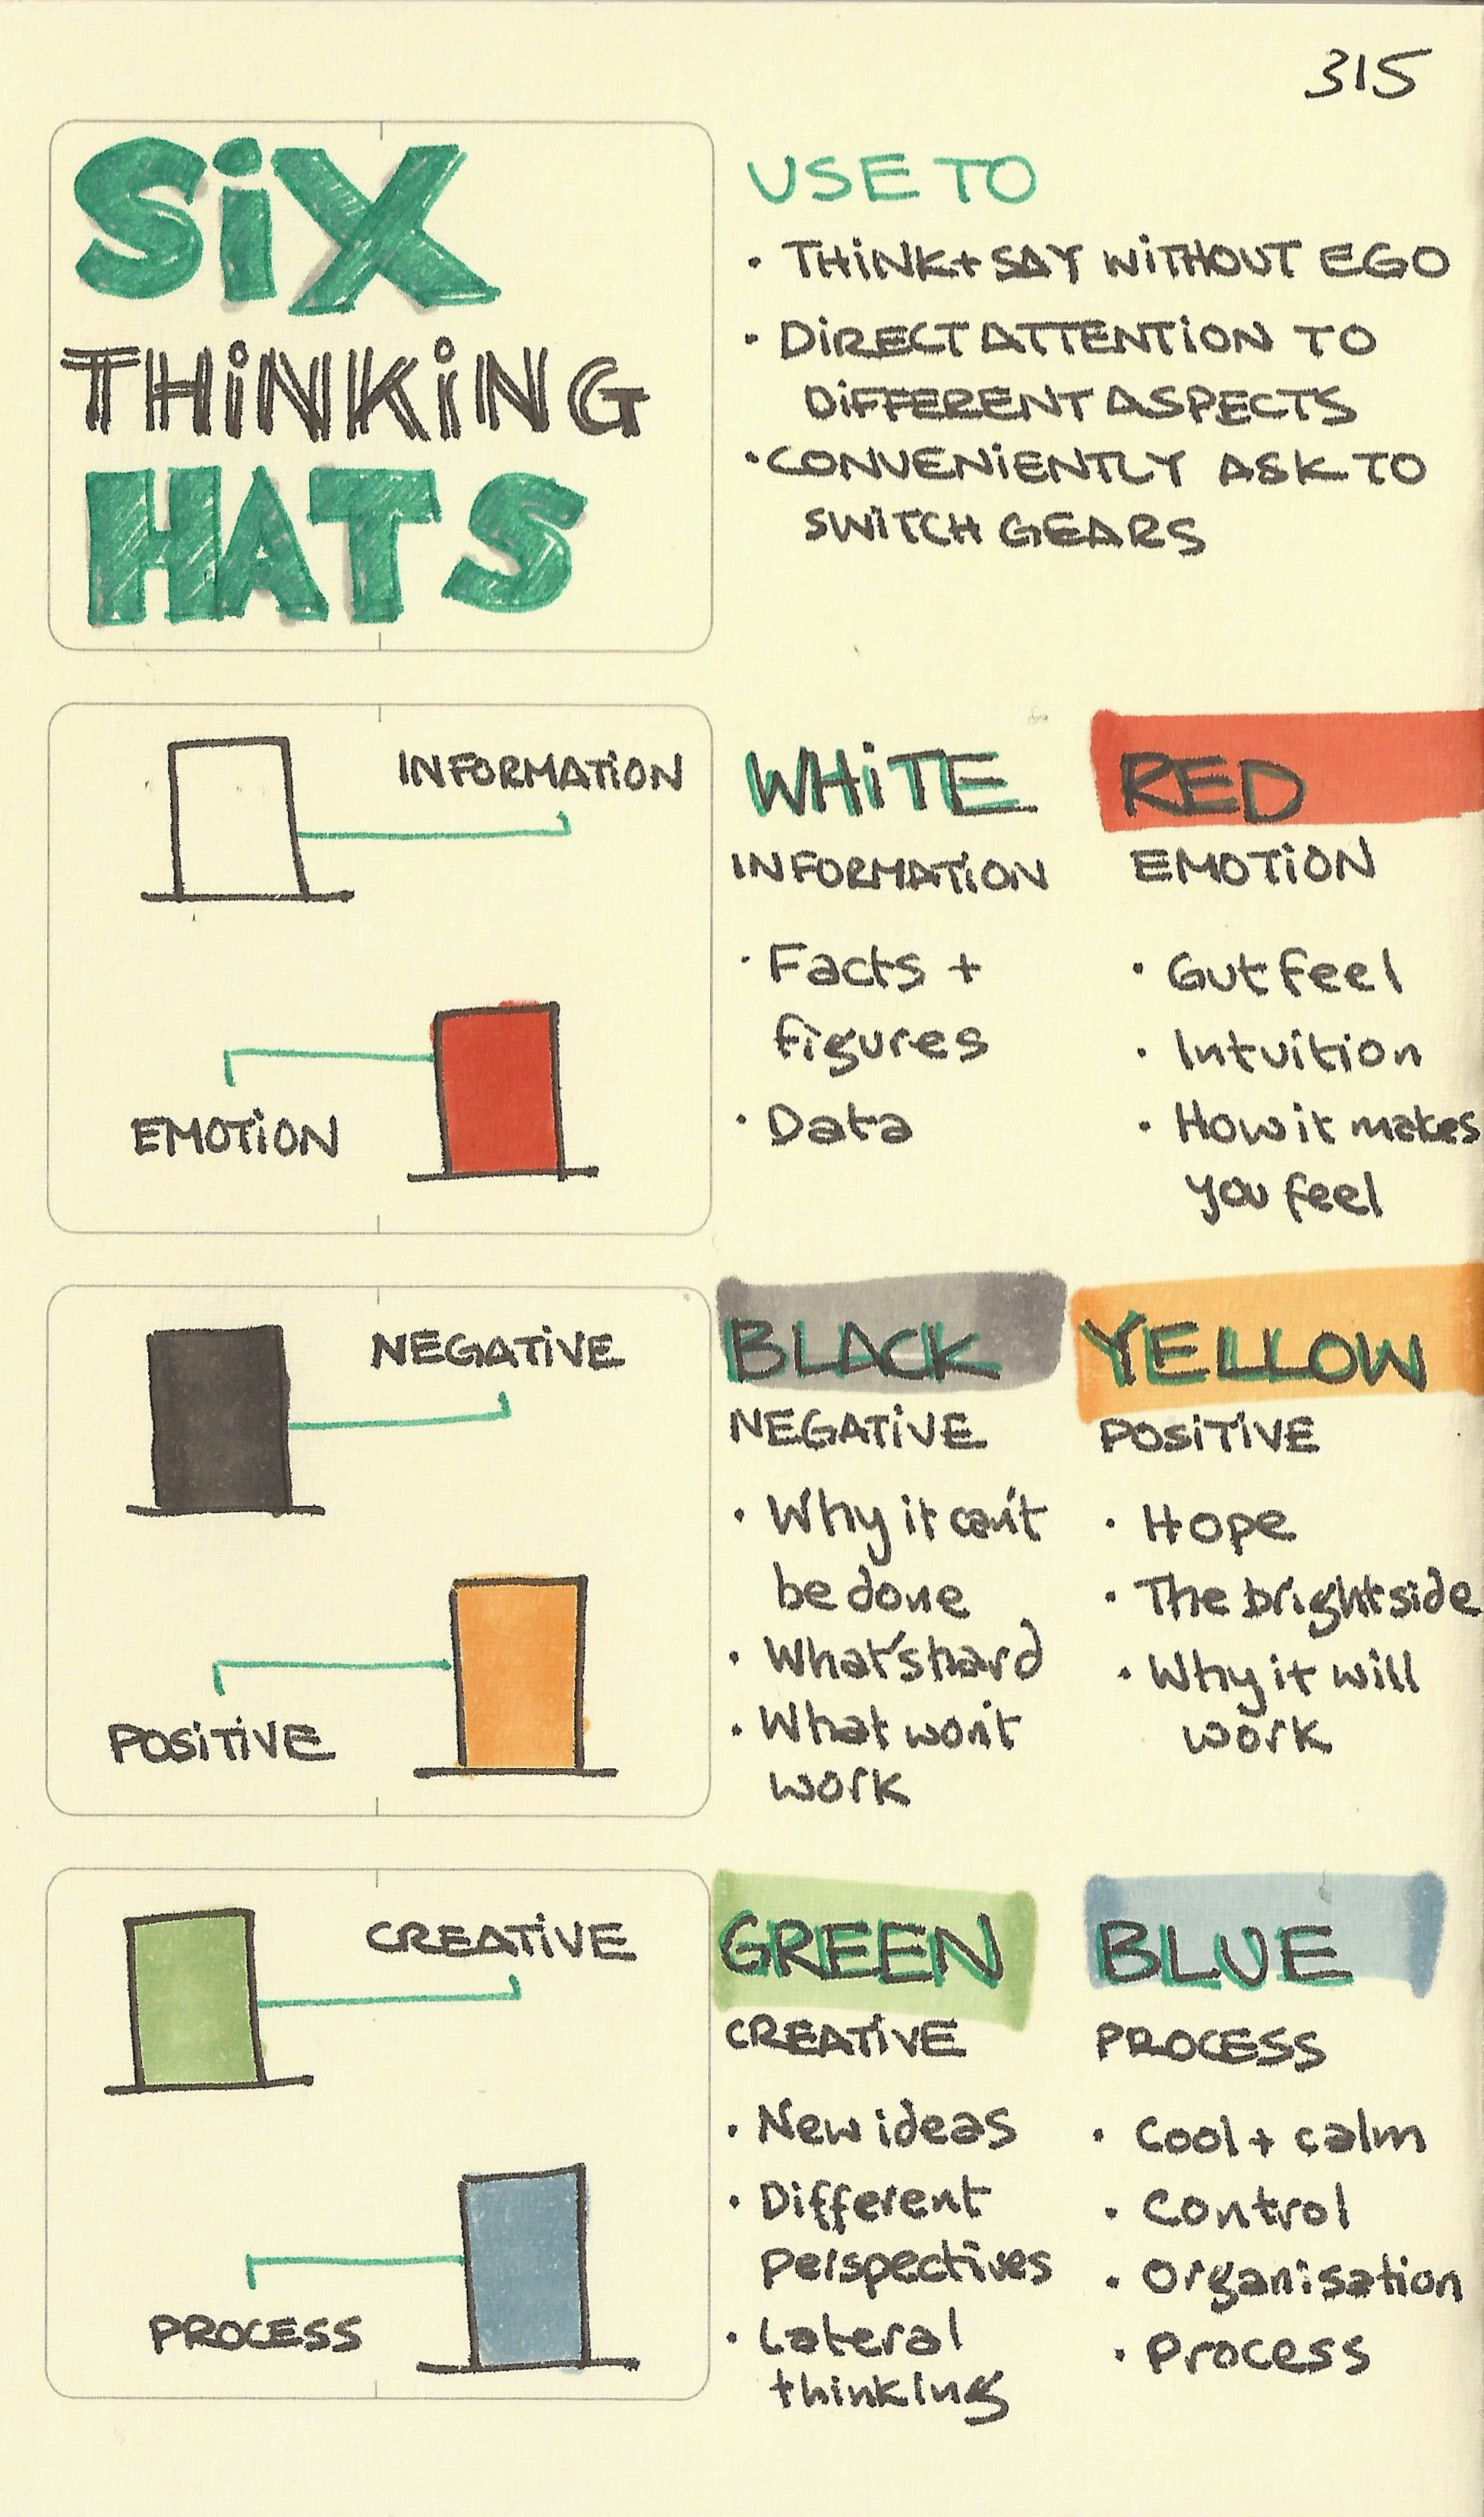 315
SiX
THiNKiNG
HATS
USE TO
• THiNK + SAY WiTHOUT EGO
• DiRECT ATTENTiON TO
DiFFERENT ASPECTS
• CONVENiENTLY ASK TO
SWiTCH GEARS
INFORMATiON
EMOTiON
WHiTE
INFORMATiON
• Facts +
figures
• Data
RED
EMOTiON
• Gut feel
• Intuition
• How it makes
you feel
NEGATiVE
POSiTiVE
BLACK
NEGATiVE
• Why it can't
be done
• What's hard
• What won't
work
YELLOW
POSiTiVE
• Hope
• The bright side
• Why it will
work
CREATiVE
PROCESS
GREEN
CREATiVE
• New ideas
• Different
Perspectives
• Lateral
thinking
BLUE
PROCESS
• Cool + calm
• Control
• Organisation
• Process